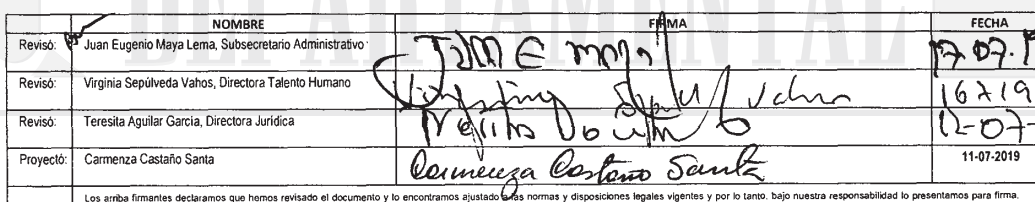 DEPARTAMENTAL
NOMBRE FIRMA FECHA
Revisó: Juan Eugenio Maya Lema, Subsecretario Administrativo 17.07.
Revisó: Virginia Sepúlveda Vahos, Directora Talento Humano
Revisó: Teresita Aguilar García, Directora Jurídica 12-07-
Proyectó: Carmenza Castaño Santa Carmenza Castaño Santa 11-07-2019
Los arriba firmantes declaramos que hemos revisado el documento y lo encontramos ajustado a las normas y disposiciones legales vigentes y por lo tanto, bajo nuestra responsabilidad lo presentamos para firma.